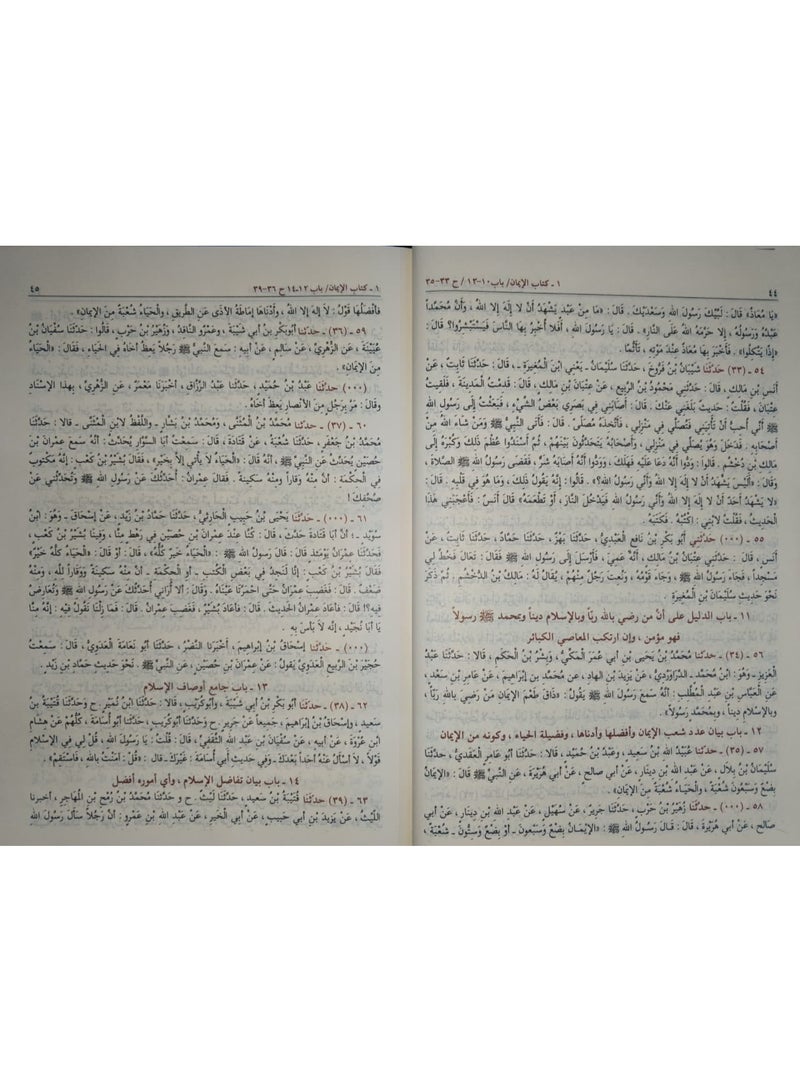 ٤٤ ١ - كتاب الإيمان/ باب ١٠-١٢ / ح ٣٣-٣٥
«يَا مُعَاذُ» قَالَ: لَبَّيْكَ رَسُولَ اللهِ وَسَعْدَيْكَ. قَالَ: «مَا مِنْ عَبْدٍ يَشْهَدُ أَنْ لَا إِلَهَ إِلَّا اللهُ، وَأَنَّ مُحَمَّداً
عَبْدُهُ وَرَسُولُهُ، إِلَّا حَرَّمَهُ اللهُ عَلَى النَّارِ». قَالَ: يَا رَسُولَ اللهِ، أَفَلَا أُخْبِرُ بِهَا النَّاسَ فَيَسْتَبْشِرُوا؟ قَالَ:
«إِذاً يَتَّكِلُوا». فَأَخْبَرَ بِهَا مُعَاذٌ عِنْدَ مَوْتِهِ، تَأَثُّماً.
٥٤ - (٣٣) حَدَّثَنَا شَيْبَانُ بْنُ فَرُّوخَ، حَدَّثَنَا سُلَيْمَانُ - يَعْنِي ابْنَ الْمُغِيرَةِ -، قَالَ: حَدَّثَنَا ثَابِتٌ، عَنْ
أَنَسِ بْنِ مَالِكٍ، قَالَ: حَدَّثَنِي مَحْمُودُ بْنُ الرَّبِيعِ، عَنْ عِتْبَانَ بْنِ مَالِكٍ، قَالَ: قَدِمْتُ الْمَدِينَةَ، فَلَقِيتُ
عِتْبَانَ، فَقُلْتُ: حَدِيثٌ بَلَغَنِي عَنْكَ. قَالَ: أَصَابَنِي فِي بَصَرِي بَعْضُ الشَّيْءِ، فَبَعَثْتُ إِلَى رَسُولِ اللهِ
ﷺ أَنِّي أُحِبُّ أَنْ تَأْتِيَنِي فَتُصَلِّيَ فِي مَنْزِلِي، فَأَتَّخِذَهُ مُصَلًّى. قَالَ: فَأَتَى النَّبِيُّ ﷺ وَمَنْ شَاءَ اللهُ مِنْ
أَصْحَابِهِ. فَدَخَلَ وَهُوَ يُصَلِّي فِي مَنْزِلِي، وَأَصْحَابُهُ يَتَحَدَّثُونَ بَيْنَهُمْ، ثُمَّ أَسْنَدُوا عُظْمَ ذَلِكَ وَكُبْرَهُ إِلَى
مَالِكِ بْنِ دُخْشُمٍ. قَالُوا: وَدُّوا أَنَّهُ دَعَا عَلَيْهِ فَهَلَكَ، وَوَدُّوا أَنَّهُ أَصَابَهُ شَرٌّ، فَقَضَى رَسُولُ اللهِ ﷺ الصَّلَاةَ،
وَقَالَ: «أَلَيْسَ يَشْهَدُ أَنْ لَا إِلَهَ إِلَّا اللهُ وَأَنِّي رَسُولُ اللهِ؟». قَالُوا: إِنَّهُ يَقُولُ ذَلِكَ، وَمَا هُوَ فِي قَلْبِهِ. قَالَ:
«لَا يَشْهَدُ أَحَدٌ أَنْ لَا إِلَهَ إِلَّا اللهُ وَأَنِّي رَسُولُ اللهِ فَيَدْخُلَ النَّارَ، أَوْ تَطْعَمَهُ» قَالَ أَنَسٌ: فَأَعْجَبَنِي هَذَا
الْحَدِيثُ، فَقُلْتُ لِابْنِي: اكْتُبْهُ. فَكَتَبَهُ.
٥٥ - (٠٠٠) حَدَّثَنِي أَبُو بَكْرِ بْنُ نَافِعٍ الْعَبْدِيُّ، حَدَّثَنَا بَهْزٌ، حَدَّثَنَا حَمَّادٌ، حَدَّثَنَا ثَابِتٌ، عَنْ
أَنَسٍ، قَالَ: حَدَّثَنِي عِتْبَانُ بْنُ مَالِكٍ، أَنَّهُ عَمِيَ، فَأَرْسَلَ إِلَى رَسُولِ اللهِ ﷺ فَقَالَ: تَعَالَ فَخُطَّ لِي
مَسْجِداً، فَجَاءَ رَسُولُ اللهِ ﷺ، وَجَاءَ قَوْمُهُ، وَنُعِتَ رَجُلٌ مِنْهُمْ، يُقَالُ لَهُ: مَالِكُ بْنُ الدُّخْشُمِ. ثُمَّ ذَكَرَ
نَحْوَ حَدِيثِ سُلَيْمَانَ بْنِ الْمُغِيرَةِ.
١١ - باب الدليل على أن من رضي بالله ربّاً وبالإسلام ديناً وبمحمد ﷺ رسولاً
فهو مؤمن، وإن ارتكب المعاصي الكبائر
٥٦ - (٣٤) حَدَّثَنَا مُحَمَّدُ بْنُ يَحْيَى بْنِ أَبِي عُمَرَ الْمَكِّيُّ، وَبِشْرُ بْنُ الْحَكَمِ، قَالَا: حَدَّثَنَا عَبْدُ
الْعَزِيزِ - وَهُوَ: ابْنُ مُحَمَّدٍ - الدَّرَاوَرْدِيُّ، عَنْ يَزِيدَ بْنِ الْهَادِ، عَنْ مُحَمَّدِ بْنِ إِبْرَاهِيمَ، عَنْ عَامِرِ بْنِ سَعْدٍ،
عَنِ الْعَبَّاسِ بْنِ عَبْدِ الْمُطَّلِبِ: أَنَّهُ سَمِعَ رَسُولَ اللهِ ﷺ يَقُولُ: «ذَاقَ طَعْمَ الْإِيمَانِ، مَنْ رَضِيَ بِاللهِ رَبّاً،
وَبِالْإِسْلَامِ دِيناً، وَبِمُحَمَّدٍ رَسُولاً».
١٢ - باب بيان عدد شعب الإيمان وأفضلها وأدناها، وفضيلة الحياء، وكونه من الإيمان
٥٧ - (٣٥) حَدَّثَنَا عُبَيْدُ اللهِ بْنُ سَعِيدٍ، وَعَبْدُ بْنُ حُمَيْدٍ، قَالَا: حَدَّثَنَا أَبُو عَامِرٍ الْعَقَدِيُّ، حَدَّثَنَا
سُلَيْمَانُ بْنُ بِلَالٍ، عَنْ عَبْدِ اللهِ بْنِ دِينَارٍ، عَنْ أَبِي صَالِحٍ، عَنْ أَبِي هُرَيْرَةَ، عَنِ النَّبِيِّ ﷺ قَالَ: «الْإِيمَانُ
بِضْعٌ وَسَبْعُونَ شُعْبَةً، وَالْحَيَاءُ شُعْبَةٌ مِنَ الْإِيمَانِ».
٥٨ - (٠٠٠) حَدَّثَنَا زُهَيْرُ بْنُ حَرْبٍ، حَدَّثَنَا جَرِيرٌ، عَنْ سُهَيْلٍ، عَنْ عَبْدِ اللهِ بْنِ دِينَارٍ، عَنْ أَبِي
صَالِحٍ، عَنْ أَبِي هُرَيْرَةَ، قَالَ: قَالَ رَسُولُ اللهِ ﷺ: «الْإِيمَانُ بِضْعٌ وَسَبْعُونَ - أَوْ بِضْعٌ وَسِتُّونَ - شُعْبَةً،
١ - كتاب الإيمان/ باب ١٢-١٤ ح ٣٦-٣٩ ٤٥
فَأَفْضَلُهَا قَوْلُ: لَا إِلَهَ إِلَّا اللهُ، وَأَدْنَاهَا إِمَاطَةُ الْأَذَى عَنِ الطَّرِيقِ، وَالْحَيَاءُ شُعْبَةٌ مِنَ الْإِيمَانِ».
٥٩ - (٣٦) حَدَّثَنَا أَبُو بَكْرِ بْنُ أَبِي شَيْبَةَ، وَعَمْرٌو النَّاقِدُ، وَزُهَيْرُ بْنُ حَرْبٍ، قَالُوا: حَدَّثَنَا سُفْيَانُ بْنُ
عُيَيْنَةَ، عَنِ الزُّهْرِيِّ، عَنْ سَالِمٍ، عَنْ أَبِيهِ: سَمِعَ النَّبِيُّ ﷺ رَجُلاً يَعِظُ أَخَاهُ فِي الْحَيَاءِ، فَقَالَ: «الْحَيَاءُ
مِنَ الْإِيمَانِ».
(٠٠٠) حَدَّثَنَا عَبْدُ بْنُ حُمَيْدٍ، حَدَّثَنَا عَبْدُ الرَّزَّاقِ، أَخْبَرَنَا مَعْمَرٌ، عَنِ الزُّهْرِيِّ، بِهَذَا الْإِسْنَادِ
وَقَالَ: مَرَّ بِرَجُلٍ مِنَ الْأَنْصَارِ يَعِظُ أَخَاهُ.
٦٠ - (٣٧) حَدَّثَنَا مُحَمَّدُ بْنُ الْمُثَنَّى، وَمُحَمَّدُ بْنُ بَشَّارٍ - وَاللَّفْظُ لِابْنِ الْمُثَنَّى - قَالَا: حَدَّثَنَا
مُحَمَّدُ بْنُ جَعْفَرٍ، حَدَّثَنَا شُعْبَةُ، عَنْ قَتَادَةَ، قَالَ: سَمِعْتُ أَبَا السَّوَّارِ يُحَدِّثُ: أَنَّهُ سَمِعَ عِمْرَانَ بْنَ
حُصَيْنٍ يُحَدِّثُ عَنِ النَّبِيِّ ﷺ، أَنَّهُ قَالَ: «الْحَيَاءُ لَا يَأْتِي إِلَّا بِخَيْرٍ»، فَقَالَ بُشَيْرُ بْنُ كَعْبٍ: إِنَّهُ مَكْتُوبٌ
فِي الْحِكْمَةِ: أَنَّ مِنْهُ وَقَاراً وَمِنْهُ سَكِينَةً. فَقَالَ عِمْرَانُ: أُحَدِّثُكَ عَنْ رَسُولِ اللهِ ﷺ وَتُحَدِّثُنِي عَنْ
صُحُفِكَ!
٦١ - (٠٠٠) حَدَّثَنَا يَحْيَى بْنُ حَبِيبٍ الْحَارِثِيُّ، حَدَّثَنَا حَمَّادُ بْنُ زَيْدٍ، عَنْ إِسْحَاقَ - وَهُوَ: ابْنُ
سُوَيْدٍ -؛ أَنَّ أَبَا قَتَادَةَ حَدَّثَ، قَالَ: كُنَّا عِنْدَ عِمْرَانَ بْنِ حُصَيْنٍ فِي رَهْطٍ مِنَّا، وَفِينَا بُشَيْرُ بْنُ كَعْبٍ،
فَحَدَّثَنَا عِمْرَانُ يَوْمَئِذٍ قَالَ: قَالَ رَسُولُ اللهِ ﷺ: «الْحَيَاءُ خَيْرٌ كُلُّهُ»، قَالَ: أَوْ قَالَ: «الْحَيَاءُ كُلُّهُ خَيْرٌ»
فَقَالَ بُشَيْرُ بْنُ كَعْبٍ: إِنَّا لَنَجِدُ فِي بَعْضِ الْكُتُبِ - أَوِ الْحِكْمَةِ - أَنَّ مِنْهُ سَكِينَةً وَوَقَاراً لِلَّهِ، وَمِنْهُ
ضَعْفٌ. قَالَ: فَغَضِبَ عِمْرَانُ حَتَّى احْمَرَّتَا عَيْنَاهُ. وَقَالَ: أَلَا أُرَانِي أُحَدِّثُكَ عَنْ رَسُولِ اللهِ ﷺ وَتُعَارِضُ
فِيهِ؟! قَالَ: فَأَعَادَ عِمْرَانُ الْحَدِيثَ. قَالَ: فَأَعَادَ بُشَيْرٌ، فَغَضِبَ عِمْرَانُ. قَالَ: فَمَا زِلْنَا نَقُولُ فِيهِ: إِنَّهُ مِنَّا
يَا أَبَا نُجَيْدٍ، إِنَّهُ لَا بَأْسَ بِهِ.
(٠٠٠) حَدَّثَنَا إِسْحَاقُ بْنُ إِبْرَاهِيمَ، أَخْبَرَنَا النَّضْرُ، حَدَّثَنَا أَبُو نَعَامَةَ الْعَدَوِيُّ، قَالَ: سَمِعْتُ
حُجَيْرَ بْنَ الرَّبِيعِ الْعَدَوِيَّ يَقُولُ: عَنْ عِمْرَانَ بْنِ حُصَيْنٍ، عَنِ النَّبِيِّ ﷺ. نَحْوَ حَدِيثِ حَمَّادِ بْنِ زَيْدٍ.
١٣ - باب جامع أوصاف الإسلام
٦٢ - (٣٨) حَدَّثَنَا أَبُو بَكْرِ بْنُ أَبِي شَيْبَةَ، وَأَبُو كُرَيْبٍ، قَالَا: حَدَّثَنَا ابْنُ نُمَيْرٍ. ح وَحَدَّثَنَا قُتَيْبَةُ بْنُ
سَعِيدٍ، وَإِسْحَاقُ بْنُ إِبْرَاهِيمَ، جَمِيعاً عَنْ جَرِيرٍ. ح وَحَدَّثَنَا أَبُو كُرَيْبٍ، حَدَّثَنَا أَبُو أُسَامَةَ، كُلُّهُمْ عَنْ هِشَامِ
ابْنِ عُرْوَةَ، عَنْ أَبِيهِ، عَنْ سُفْيَانَ بْنِ عَبْدِ اللهِ الثَّقَفِيِّ، قَالَ: قُلْتُ: يَا رَسُولَ اللهِ، قُلْ لِي فِي الْإِسْلَامِ
قَوْلاً، لَا أَسْأَلُ عَنْهُ أَحَداً بَعْدَكَ - وَفِي حَدِيثِ أَبِي أُسَامَةَ: غَيْرَكَ - قَالَ: «قُلْ: آمَنْتُ بِاللهِ، فَاسْتَقِمْ».
١٤ - باب بيان تفاضل الإسلام، وأي أموره أفضل
٦٣ - (٣٩) حَدَّثَنَا قُتَيْبَةُ بْنُ سَعِيدٍ، حَدَّثَنَا لَيْثٌ. ح وَحَدَّثَنَا مُحَمَّدُ بْنُ رُمْحِ بْنِ الْمُهَاجِرِ، أَخْبَرَنَا
اللَّيْثُ، عَنْ يَزِيدَ بْنِ أَبِي حَبِيبٍ، عَنْ أَبِي الْخَيْرِ، عَنْ عَبْدِ اللهِ بْنِ عَمْرٍو: أَنَّ رَجُلاً سَأَلَ رَسُولَ اللهِ